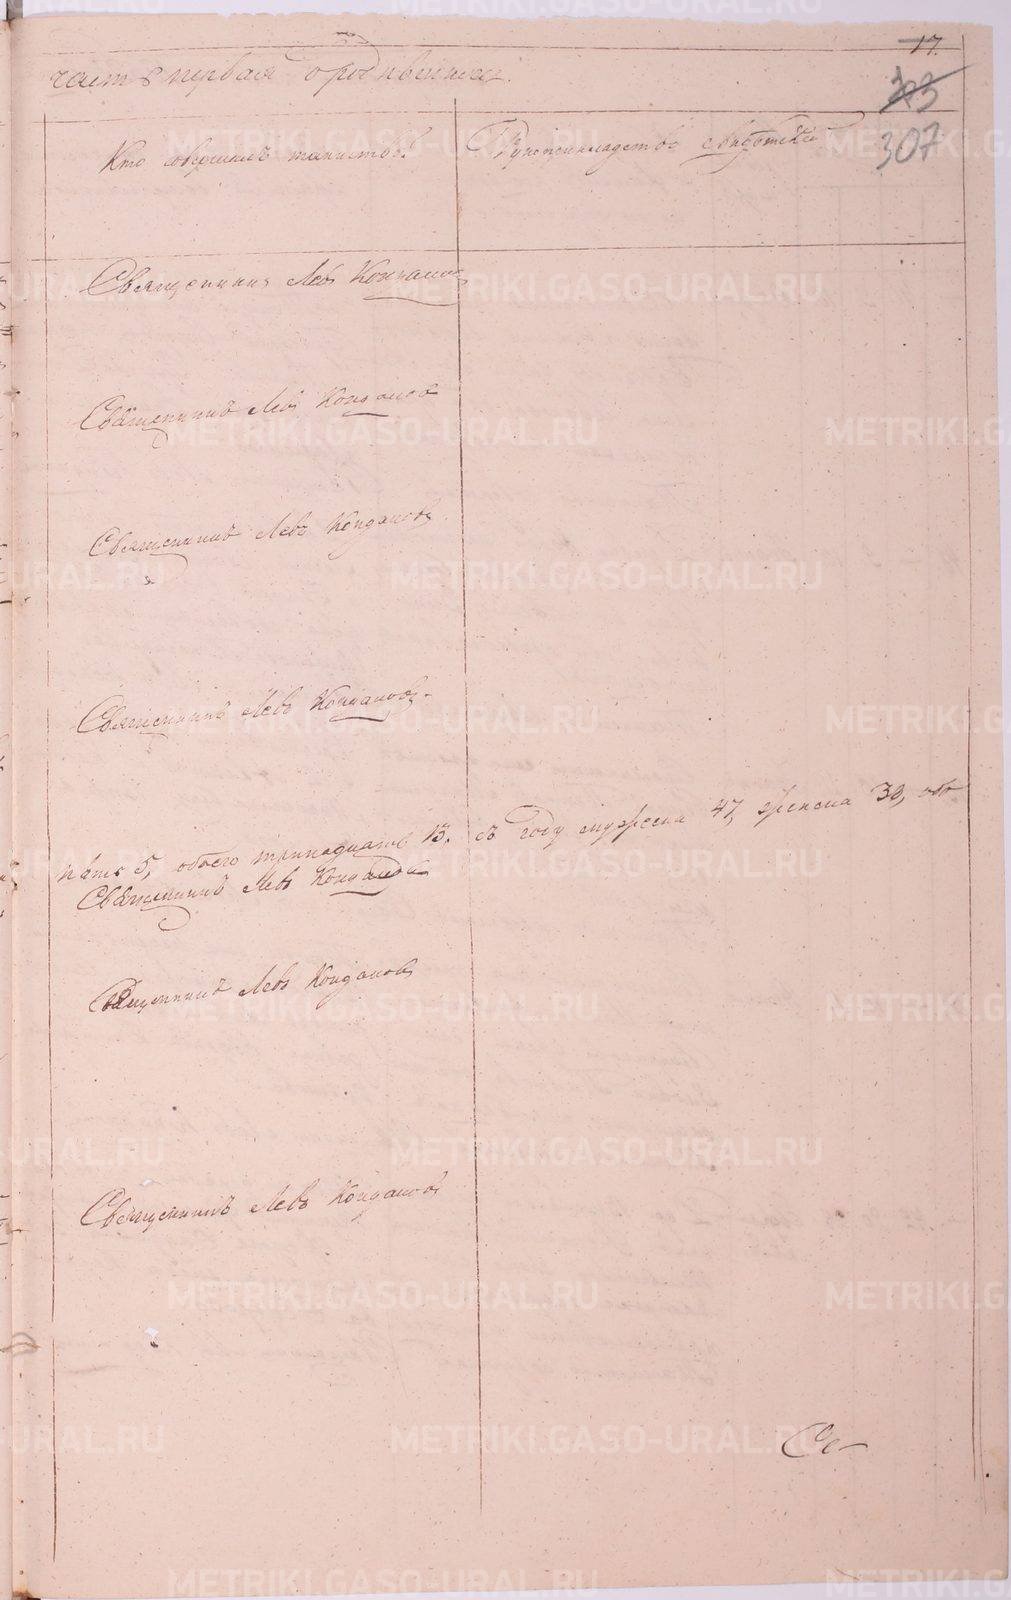 17.
часть первая о родившихся.
307
Кто совершалъ таинство.
Рукоприкладство свидѣтелей
Священникъ Левъ Кондаковъ
Священникъ Левъ Кондаковъ
Священникъ Левъ Кондаковъ
Священникъ Левъ Кондаковъ
пять 5, обоего тринадцать 13. въ году мужеска 47, женска 38, обо
Священникъ Левъ Кондаковъ
Священникъ Левъ Кондаковъ
Священникъ Левъ Кондаковъ
Се-
METRIKI.GASO-URAL.RU